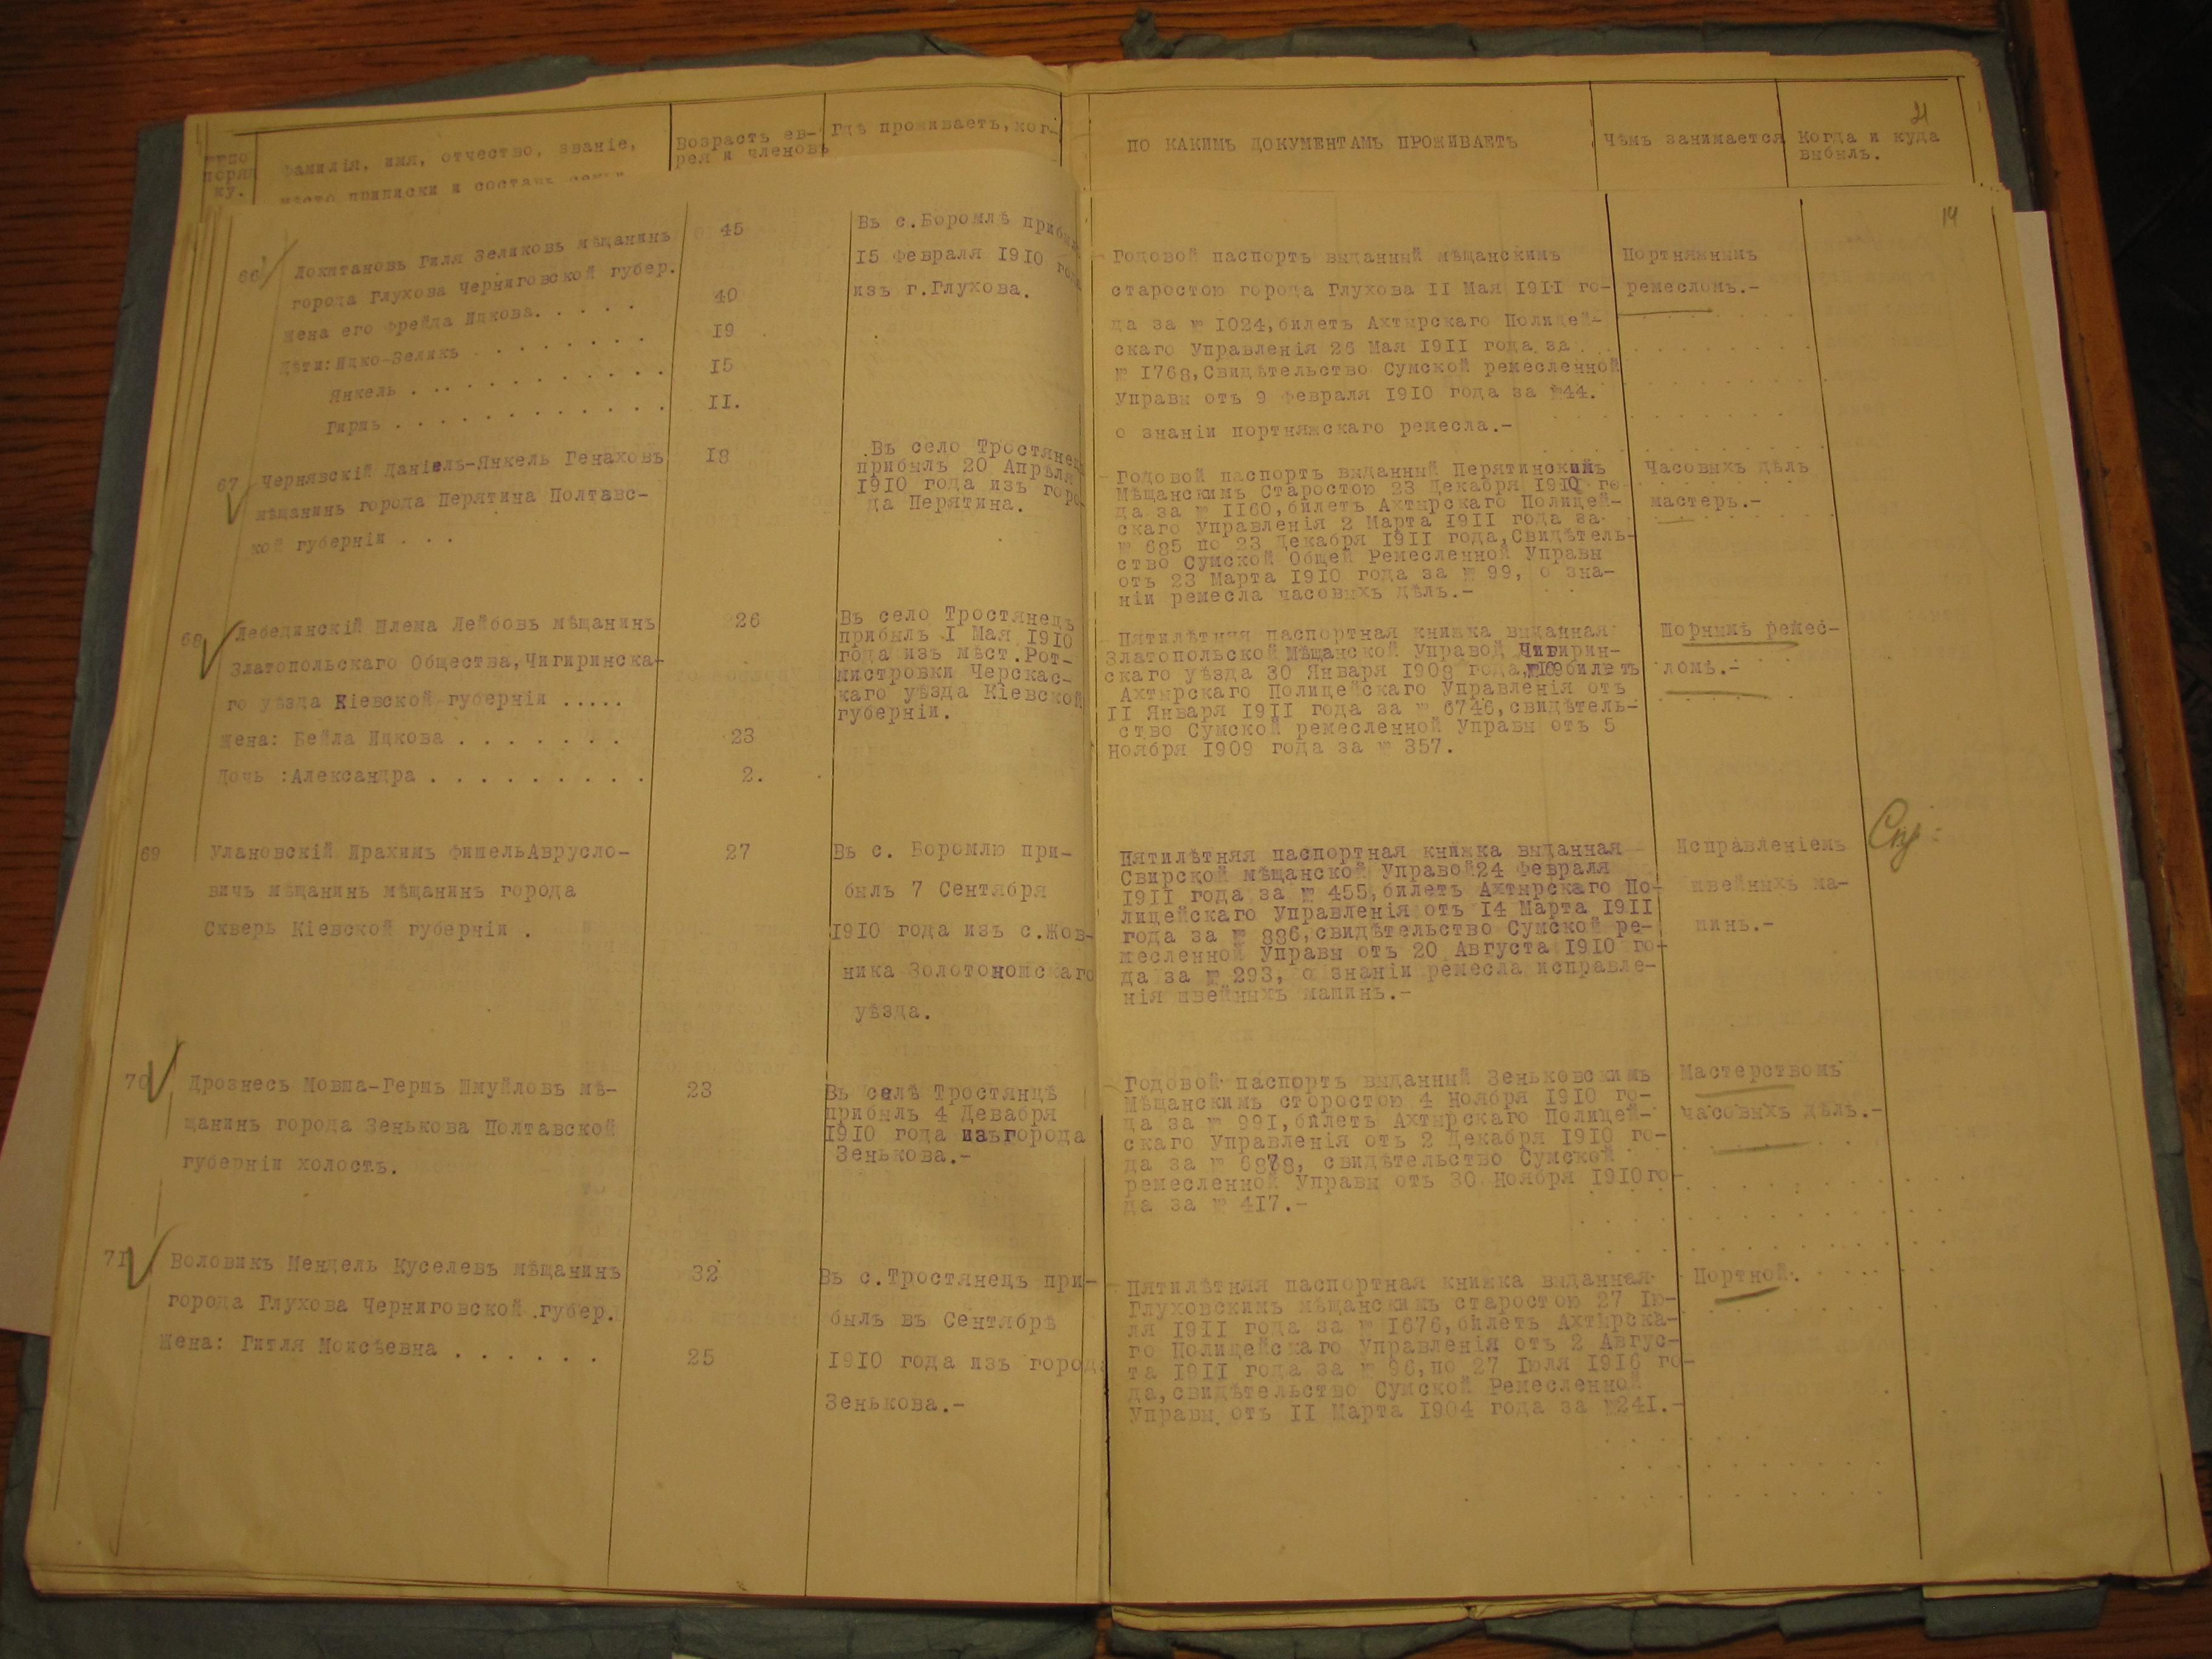 порядку.
Фамилія, имя, отчество, званіе,
мѣсто приписки и составъ
Возрастъ ев-
рея и членовъ
Гдѣ проживаетъ, ког-
ПО КАКИМЪ ДОКУМЕНТАМЪ ПРОЖИВАЕТЪ
Чѣмъ занимается
Когда и куда
выбылъ.
21
14
66
Локитановъ Гиля Зеликовъ мѣщанинъ
города Глухова Черниговской губер.
Жена его Фрейда Ицкова. . . . .
Дѣти: Ицко-Зеликъ . . . . . . . .
Янкель . . . . . . . . . . .
Гиршъ . . . . . . . . . . .
45
40
19
15
II.
Въ с.Боромлѣ прибылъ
15 Февраля 1910 года
изъ г.Глухова.
Годовой паспортъ выданный мѣщанскимъ
старостою города Глухова II Мая 1911 го-
да за № 1024,билетъ Ахтырскаго Полицей-
скаго Управленія 26 Мая 1911 года за
№ 1768,Свидѣтельство Сумской ремесленной
Управы отъ 9 Февраля 1910 года за №44.
о знаніи портняжскаго ремесла.-
Портняжнымъ
ремесломъ.-
67
Чернявскій Даніелъ-Янкель Генаховъ
мѣщанинъ города Перятина Полтавс-
кой губерніи . . .
18
Въ село Тростянецъ
прибылъ 20 Апрѣля
1910 года изъ горо-
да Перятина.
Годовой паспортъ выданный Перятинскимъ
Мѣщанскимъ Старостою 23 Декабря 1910 го-
да за № 1160,билетъ Ахтырскаго Полицей-
скаго Управленія 2 Марта 1911 года за
№ 685 по 23 Декабря 1911 года,Свидѣтель-
ство Сумской Общей Ремесленной Управы
отъ 23 Марта 1910 года за № 99, о зна-
ніи ремесла часовыхъ дѣлъ.-
Часовыхъ дѣлъ
мастеръ.-
68
Лебединскій Шлема Лейбовъ мѣщанинъ
Златопольскаго Общества,Чигиринска-
го уѣзда Кіевской губерніи .....
Жена: Бейла Ицкова . . . . . . .
Дочь :Александра . . . . . . . . .
26
23
2.
Въ село Тростянецъ
прибылъ I Мая 1910
года изъ мѣст.Рот-
мистровки Черскас-
каго уѣзда Кіевской
губерніи.
Пятилѣтняя паспортная книжка выданная
Златопольской Мѣщанской Управой Чигирин-
скаго уѣзда 30 Января 1908 года, билетъ
Ахтырскаго Полицейскаго Управленія отъ
II Января 1911 года за № 6746,свидѣтель-
ство Сумской ремесленной Управы отъ 5
Ноября 1909 года за № 357.
Шорнымъ ремес-
ломъ.-
69
Улановскій Ирахимъ ФишельАврусло-
вичъ мѣщанинъ мѣщанинъ города
Скверъ Кіевской губерніи .
27
Въ с. Боромлю при-
былъ 7 Сентября
1910 года изъ с.Жов-
ника Золотоношскаго
уѣзда.
Пятилѣтняя паспортная книжка выданная
Свирской мѣщанской Управой24 Февраля
1911 года за № 455,билетъ Ахтырскаго По-
лицейскаго Управленія отъ 14 Марта 1911
года за № 886,свидѣтельство Сумской ре-
месленной Управы отъ 20 Августа 1910 го-
да за № 293, о знаніи ремесла исправле-
нія швейныхъ машинъ.-
Исправленіемъ
швейныхъ ма-
шинъ.-
70
Дрознесъ Мовша-Гершъ Шмуйловъ мѣ-
щанинъ города Зенькова Полтавской
губерніи холостъ.
23
Въ селѣ Тростянцѣ
прибылъ 4 Девабря
1910 года изъгорода
Зенькова.-
Годовой паспортъ выданный Зеньковскимъ
Мѣщанскимъ сторостою 4 Ноября 1910 го-
да за № 991,билетъ Ахтырскаго Полицей-
скаго Управленія отъ 2 Декабря 1910 го-
да за № 6878, свидѣтельство Сумской
ремесленной Управы отъ 30 Ноября 1910го-
да за № 417.-
Мастерствомъ
часовыхъ дѣлъ.-
71
Воловикъ Мендель Куселевъ мѣщанинъ
города Глухова Черниговской губер.
Жена: Гитля Моисѣевна . . . . . .
32
25
Въ с.Тростянецъ при-
былъ въ Сентябрѣ
1910 года изъ города
Зенькова.-
Пятилѣтняя паспортная книжка выданная
Глуховскимъ мѣщанскимъ старостою 27 Iю-
ля 1911 года за № 1676,билетъ Ахтырска-
го Полицейскаго Управленія отъ 2 Авгус-
та 1911 года за № 96,по 27 Iюля 1916 го-
да,свидѣтельство Сумской Ремесленной
Управы отъ II Марта 1904 года за №241.-
Портной.